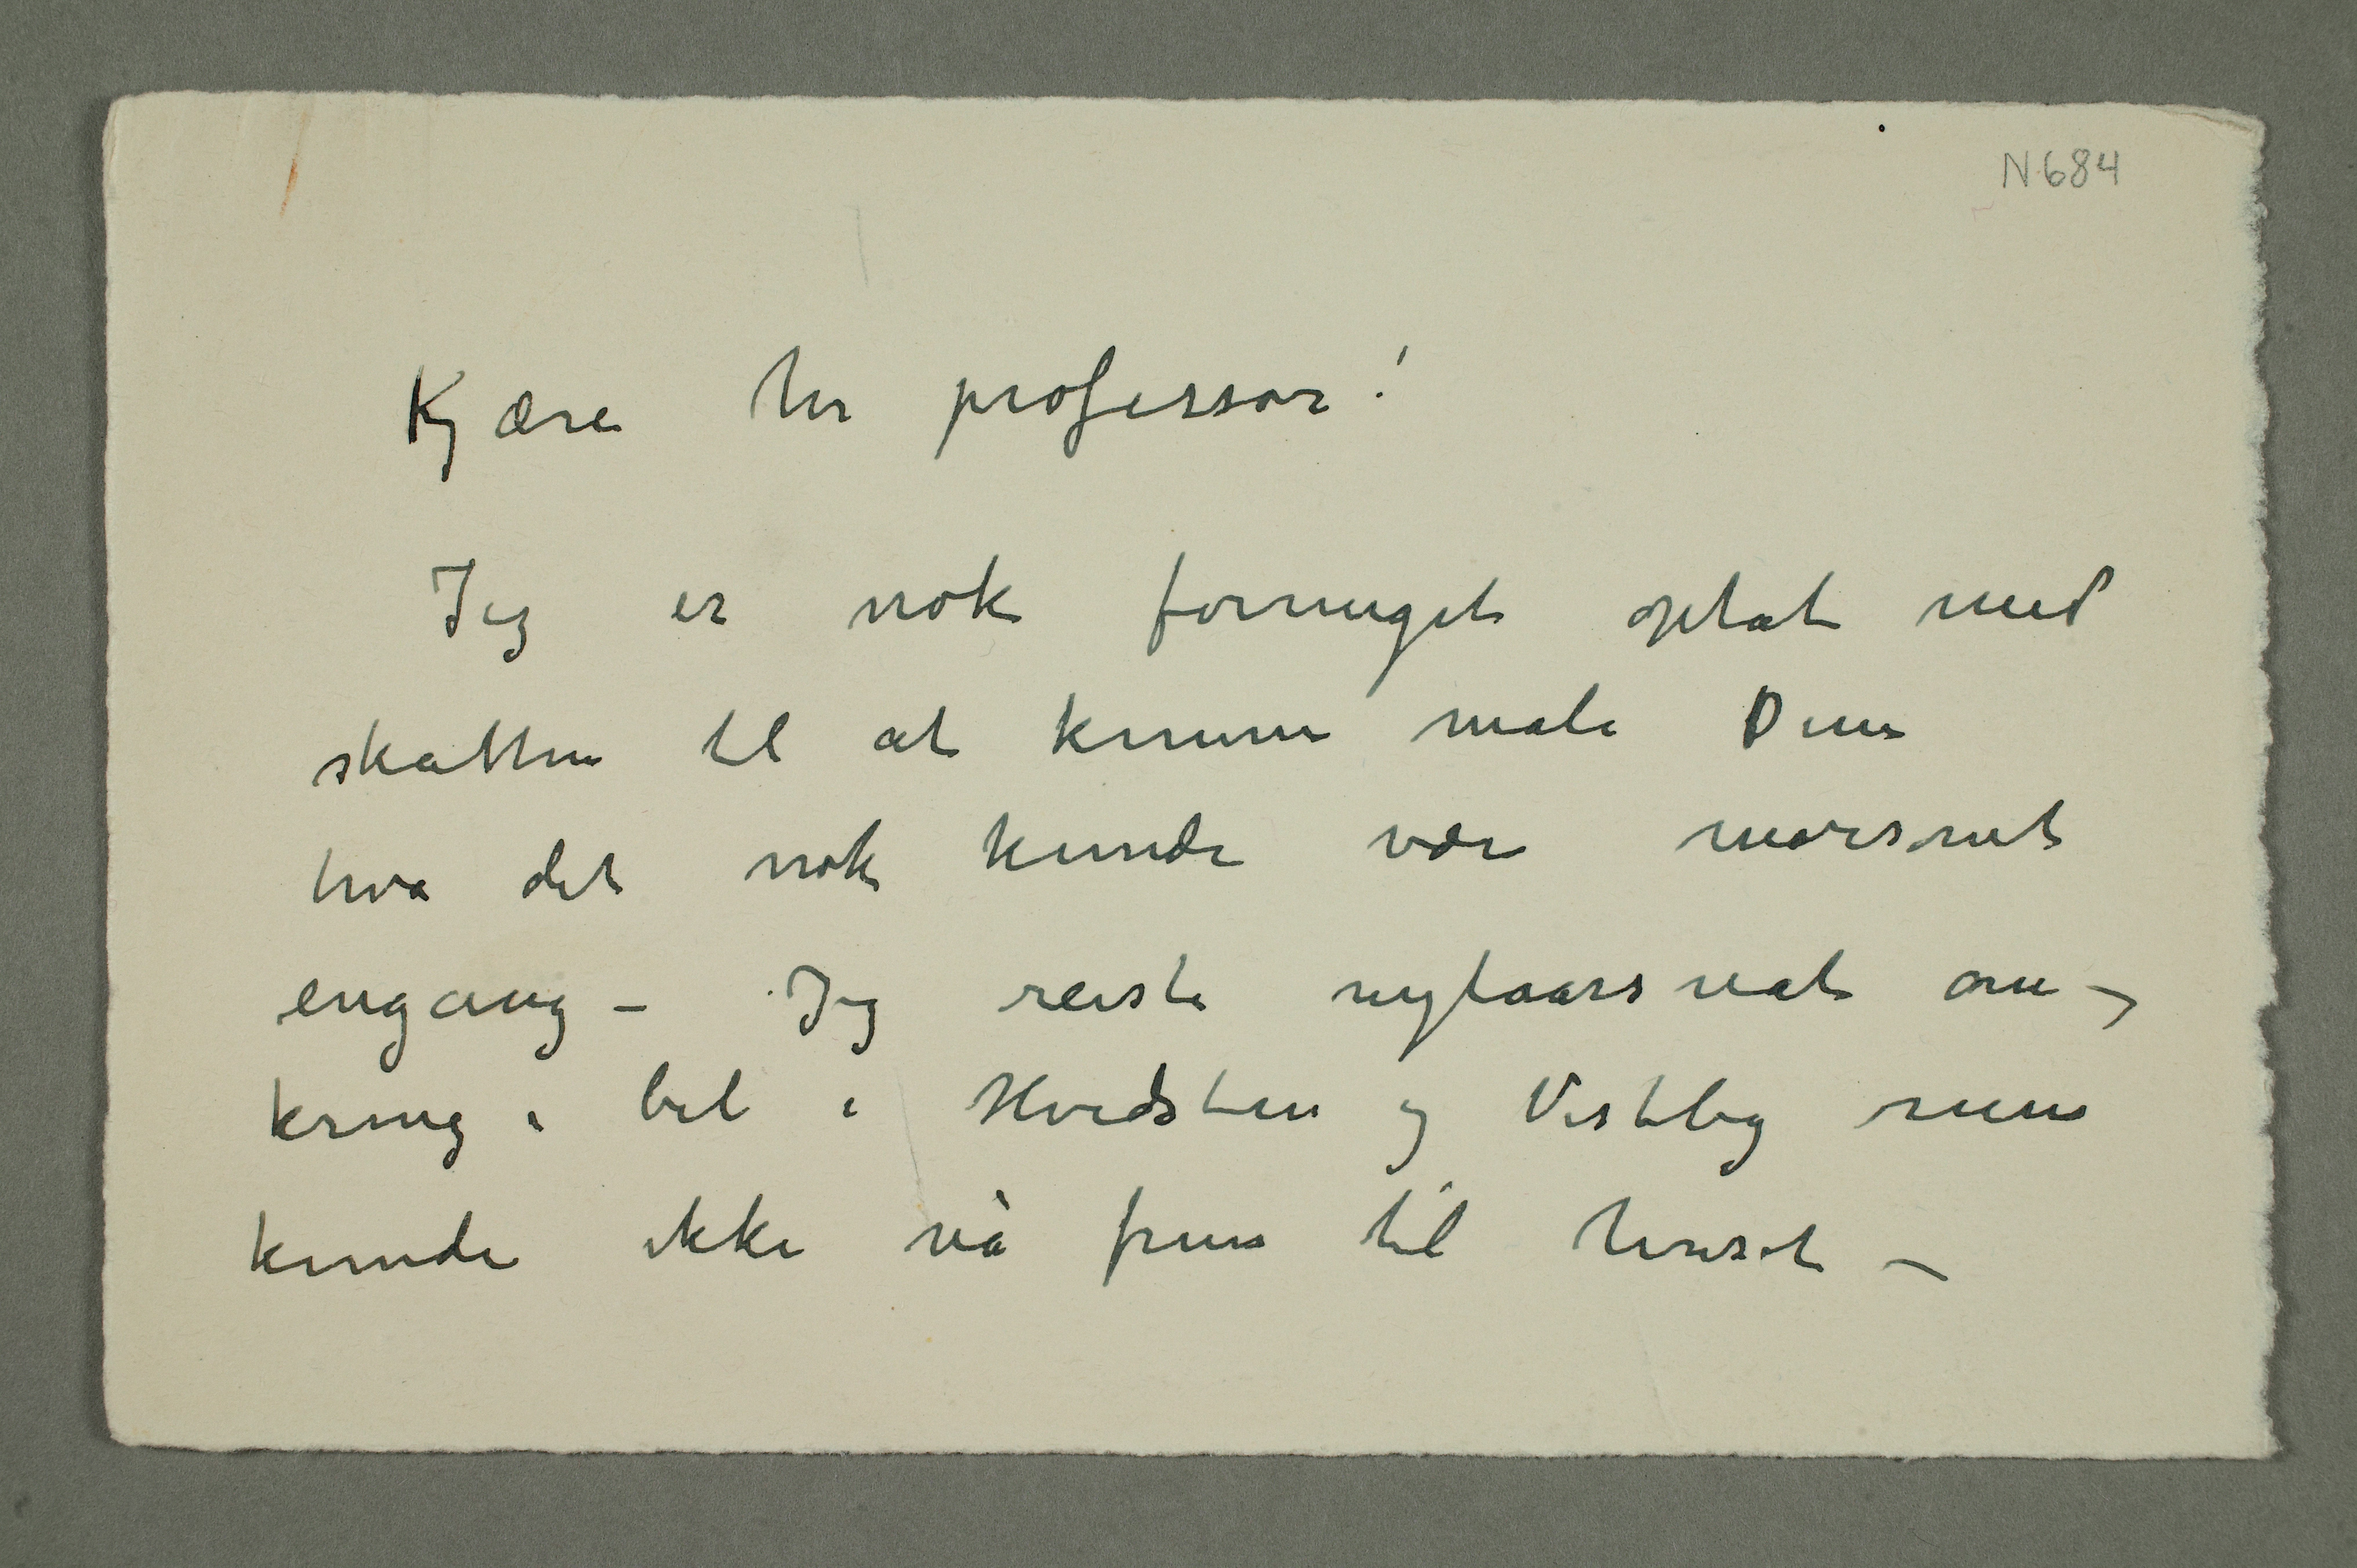 N 684
Kjære hr professor!
Jeg er nok formeget optat med
skatten til at kunne male Dem
hva det nok kunde være morsomt
engang – Jeg reiste nytaarsnat om-
kring i bil i Hvidsten og Vestby men
kunde ikke nå frem til huset –